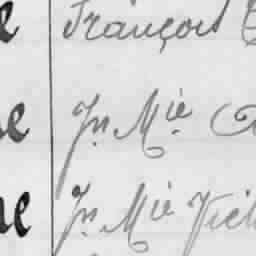 e François
ne Jn Mie
ne Jn Mie Vict